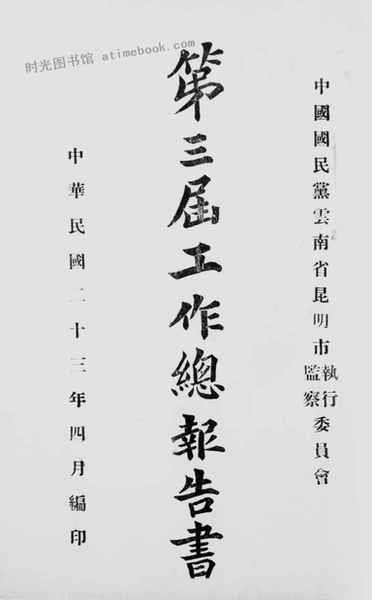 时光图书馆 atimebook.com
中國國民黨雲南省昆明市執行監察委員會
第三屆工作總報告書
中華民國二十三年四月編印